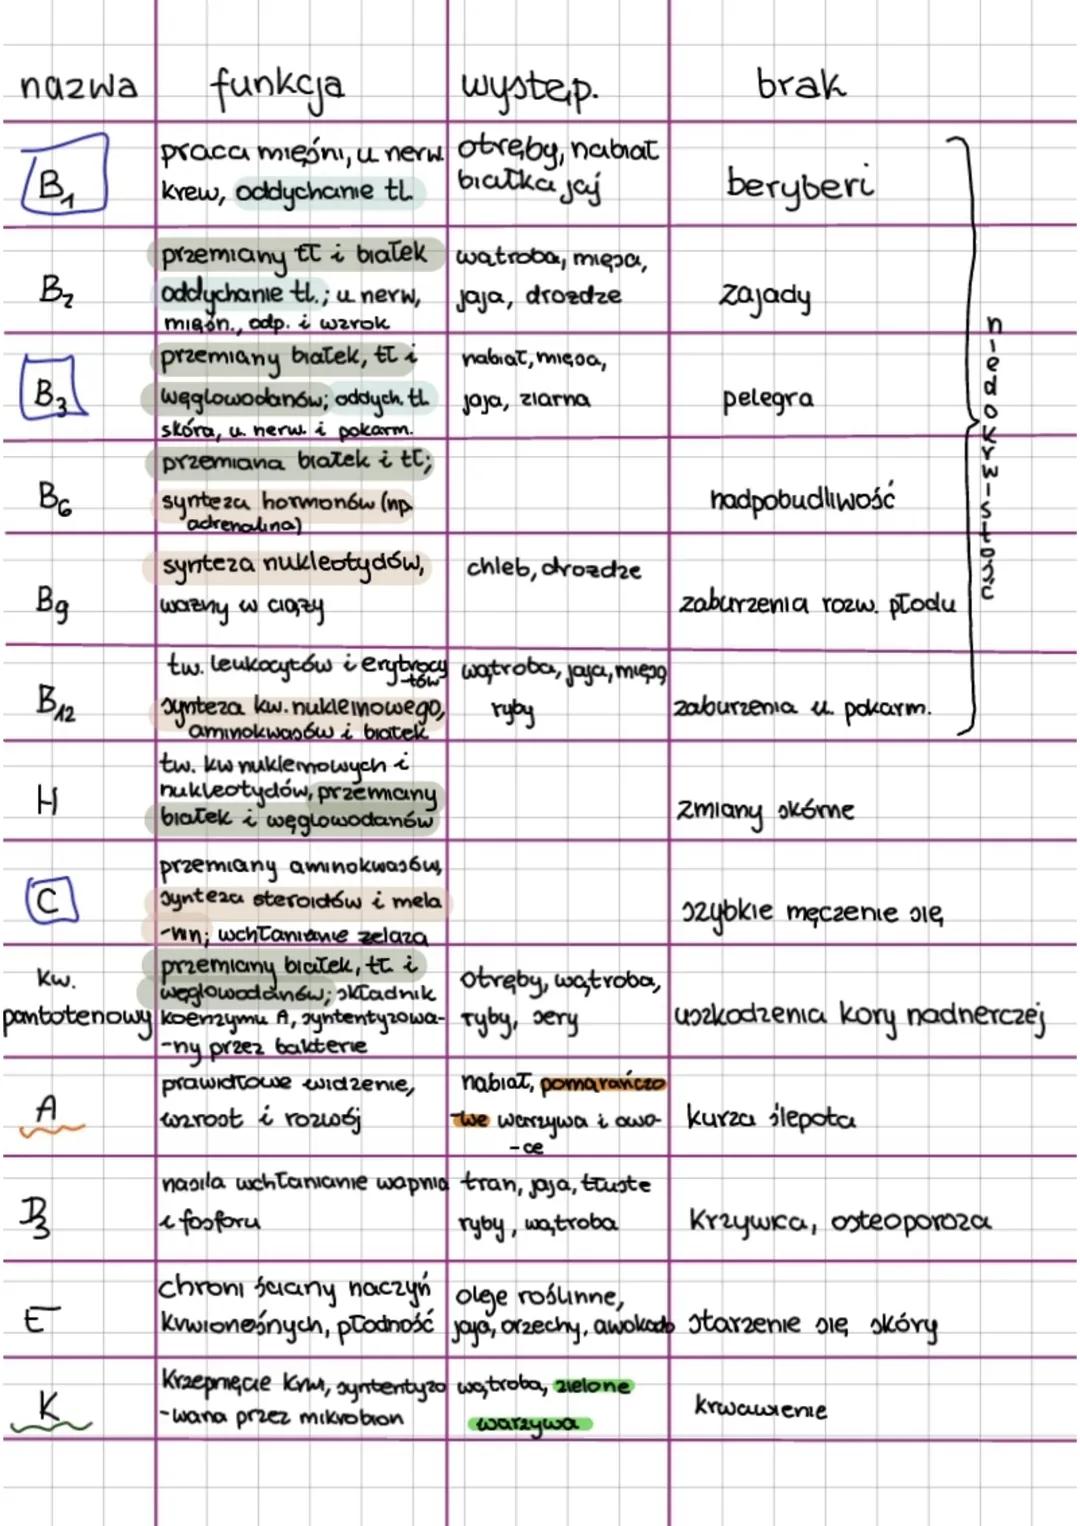 nazwa funkcja występ. brak
B₁
praca mięśni, u nerw
krew, oddychanie tł.
otręby, nabiał
białka jaj
beryberi
B₂
przemiany tł i białek
oddychanie tł.; u nerw,
mięśn., odp. i wzrok
wątroba, mięsa,
jaja, drozdze
zajady
B₃
przemiany białek, tł i
węglowodanów; oddych. tl.
skóra, u. nerw. i pokarm.
nabiał, mięsa,
jaja, ziarna
pelegra
B₆
przemiana białek i tł;
synteza hormonów (np
adrenalina)
nadpobudliwość
B₉
synteza nukleotydów,
wazny w ciąży
chleb, drozdze
zaburzenia rozw. płodu
B₁₂
tw. leukocytów i erytrocy
-tów
synteza kw. nukleinowego,
aminokwasów i białek
wątroba, jaja, mięso
ryby
zaburzenia u. pokarm.
niedokrwistość
H
tw. kw nukleinowych i
nukleotydów, przemiany
białek i węglowodanów
zmiany skórne
C
przemiany aminokwasów,
synteza steroidów i mela
-nin; wchłanianie zelaza
szybkie męczenie się
kw.
pantotenowy
przemiany białek, tł. i
węglowodanów; składnik
koenzymu A, syntentyzowa-
-ny przez bakterie
otręby, wątroba,
ryby, sery
uszkodzenia kory nadnerczej
A
prawidłowe widzenie,
wzrost i rozwój
nabiał, pomarańczo
-we warzywa i owo-
-ce
kurza ślepota
D₃
nasila wchłanianie wapnia
i fosforu
tran, jaja, tłuste
ryby, wątroba
Krzywica, osteoporoza
E
chroni ściany naczyń
krwionośnych, płodność
oleje roślinne,
jaja, orzechy, awokado
starzenie się skóry
K
Krzepnięcie krwi, syntentyzo
-wana przez mikrobion
wątroba, zielone
warzywa
krwawienie